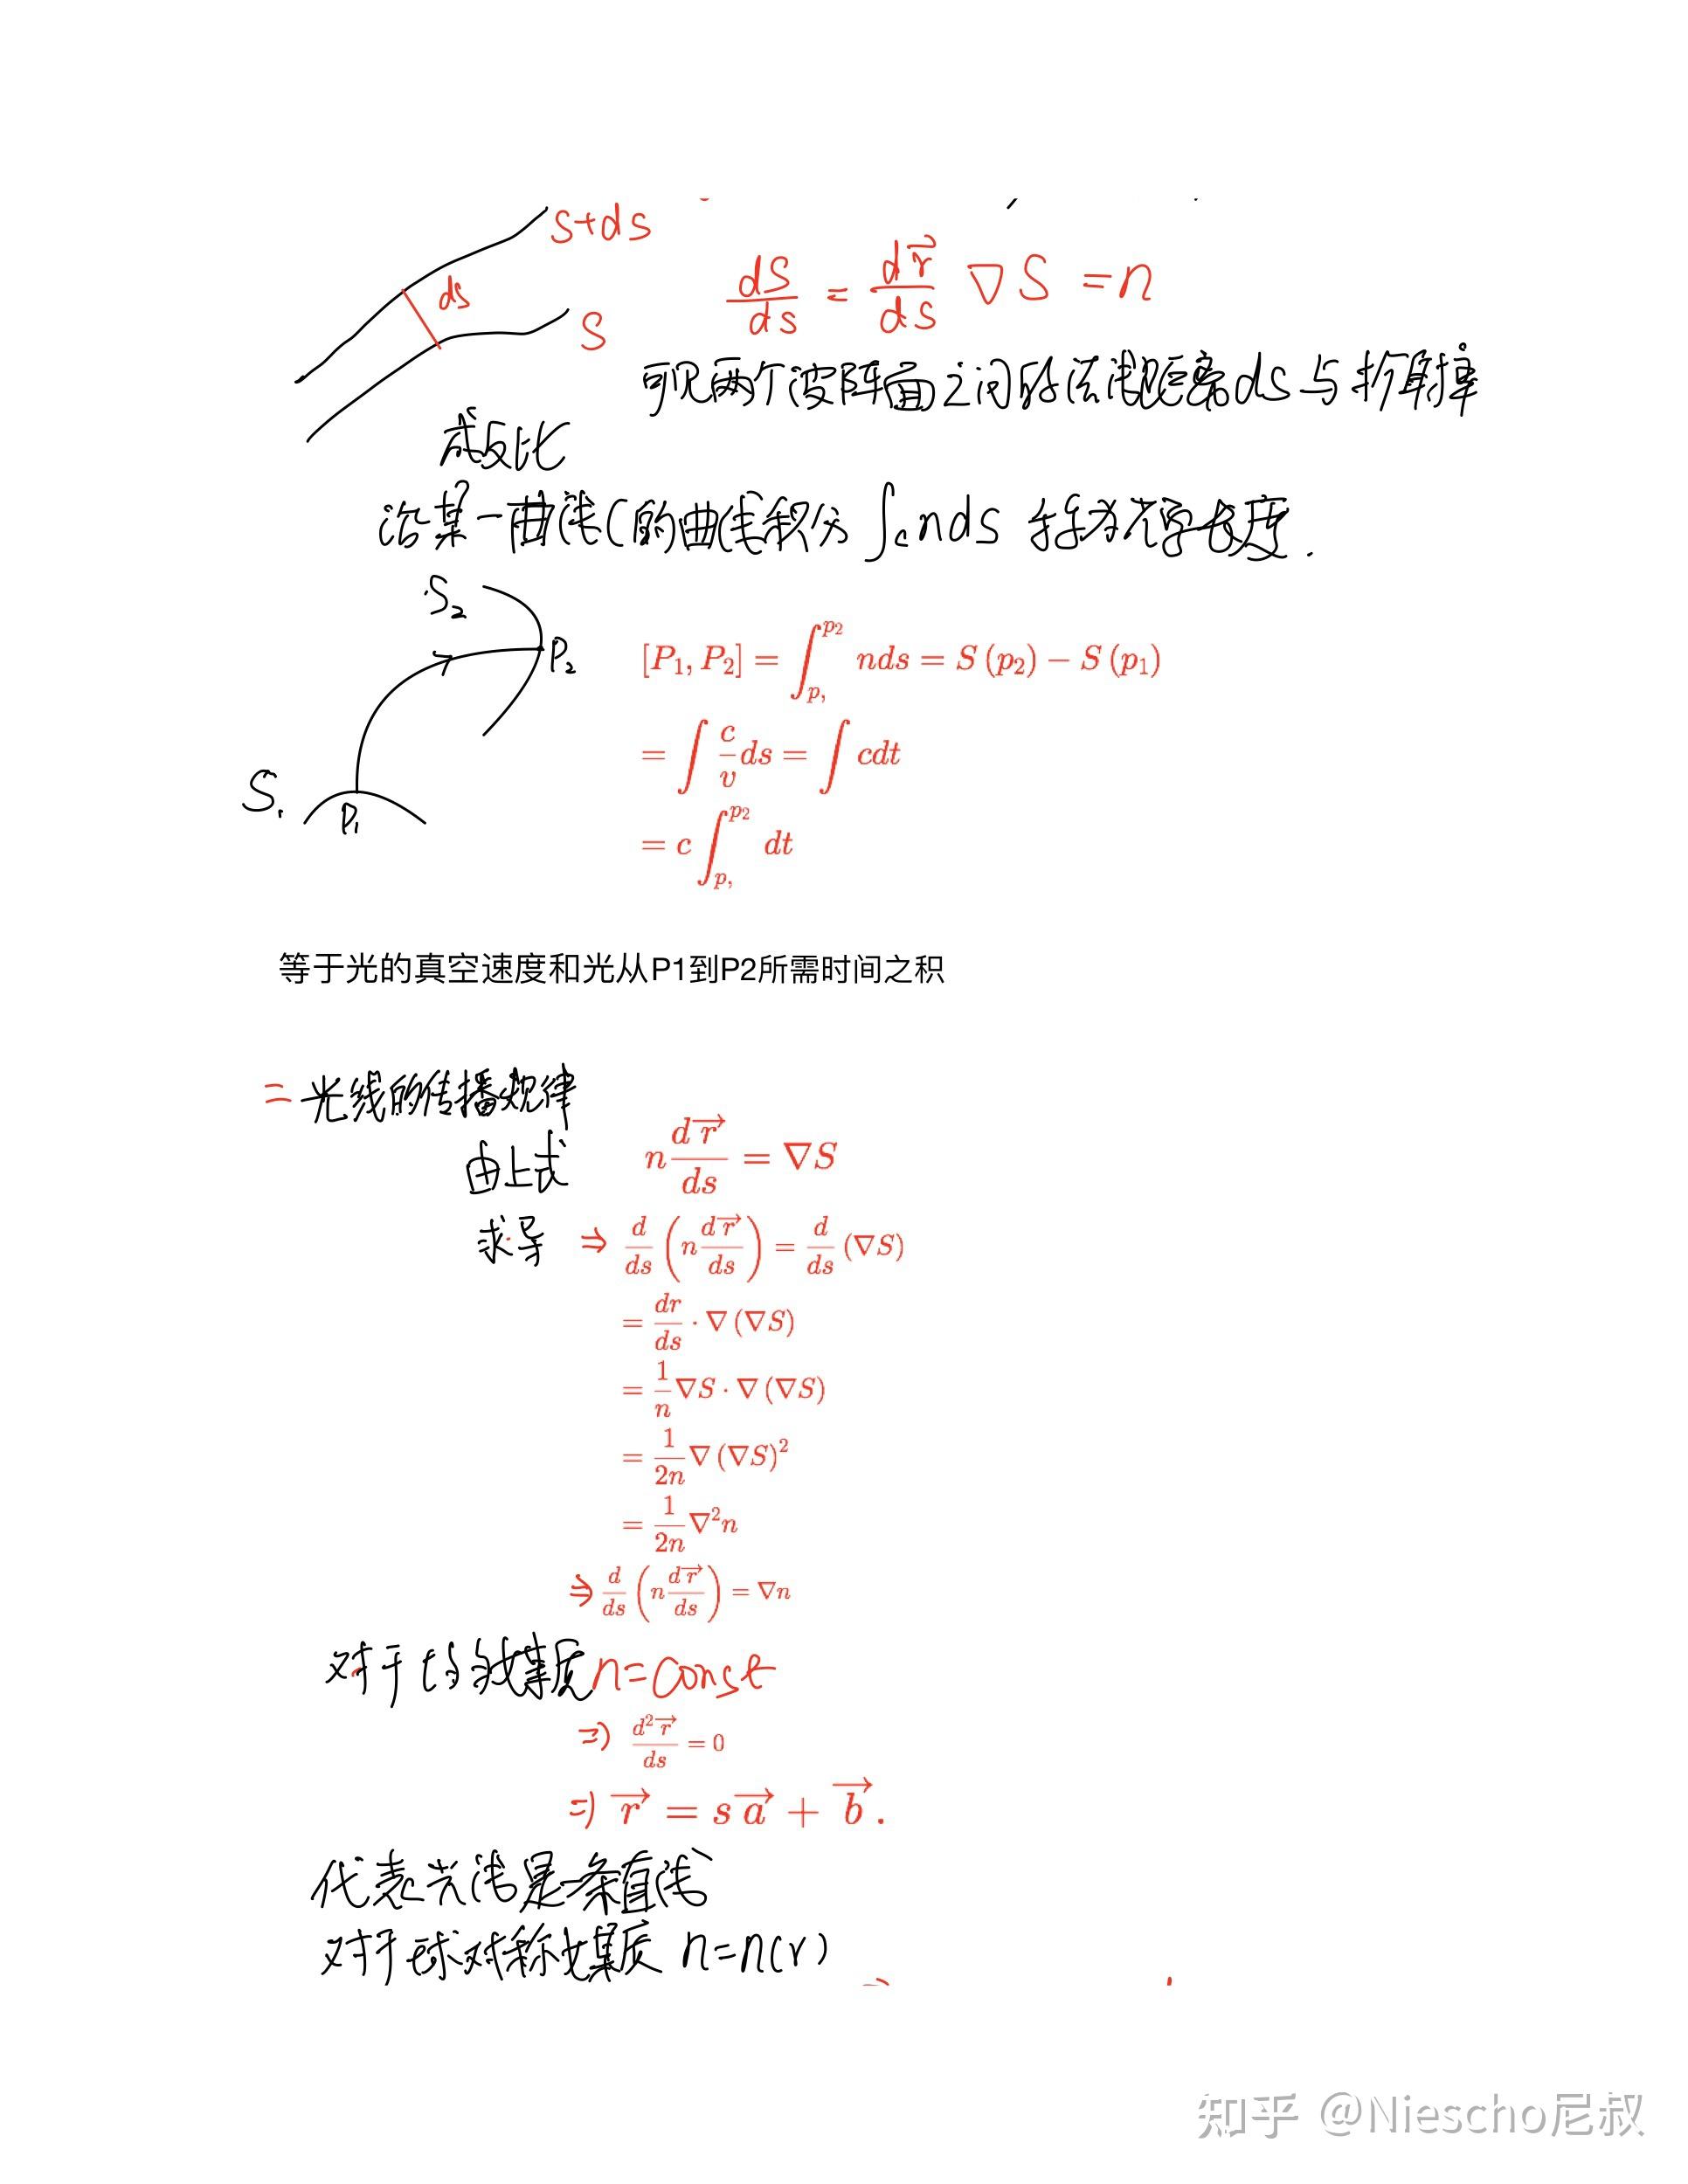 S+ds
ds
S
dS/ds = dr⃗/ds ∇S = n
可见两个波阵面之间的法线距离ds与折射率
成反比
沿某一曲线C的曲线积分 ∫c nds 称为光学长度.
S₂
P₂
S₁
P₁
[P₁, P₂] = ∫_{p,}^{p₂} nds = S(p₂) − S(p₁)
= ∫ c/v ds = ∫ cdt
= c ∫_{p,}^{p₂} dt
等于光的真空速度和光从P1到P2所需时间之积
二 光线的传播规律
由上式 n dr⃗/ds = ∇S
求导 ⇒ d/ds (n dr⃗/ds) = d/ds (∇S)
= dr/ds · ∇(∇S)
= 1/n ∇S · ∇(∇S)
= 1/2n ∇(∇S)²
= 1/2n ∇²n
⇒ d/ds (n dr⃗/ds) = ∇n
对于均匀媒质n=const
⇒ d²r⃗/ds = 0
⇒ r⃗ = sa⃗ + b⃗.
代表光线是一条直线
对于球对称媒质 n=n(r)
知乎 @Niescho尼叔